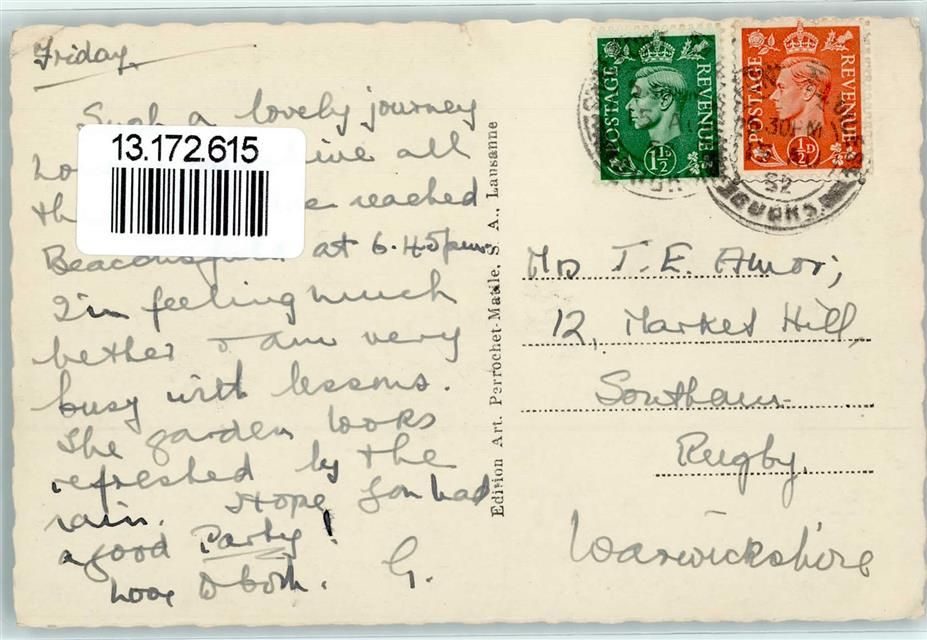 Friday.
Such a lovely journey
all
reached
at 6.45pm.
I'm feeling much
better & am very
busy with lessons.
The garden looks
refreshed by the
rain. Hope you had
a good Party!
Love to both. G.
13.172.615
Edition Art. Perrochet-Matile, S. A., Lausanne
POSTAGE REVENUE
1½D
POSTAGE REVENUE
½D
30PM
52
BUCKS.
Mrs T. E. Amor,
12, Market Hill,
Southam
Rugby.
Warwickshire